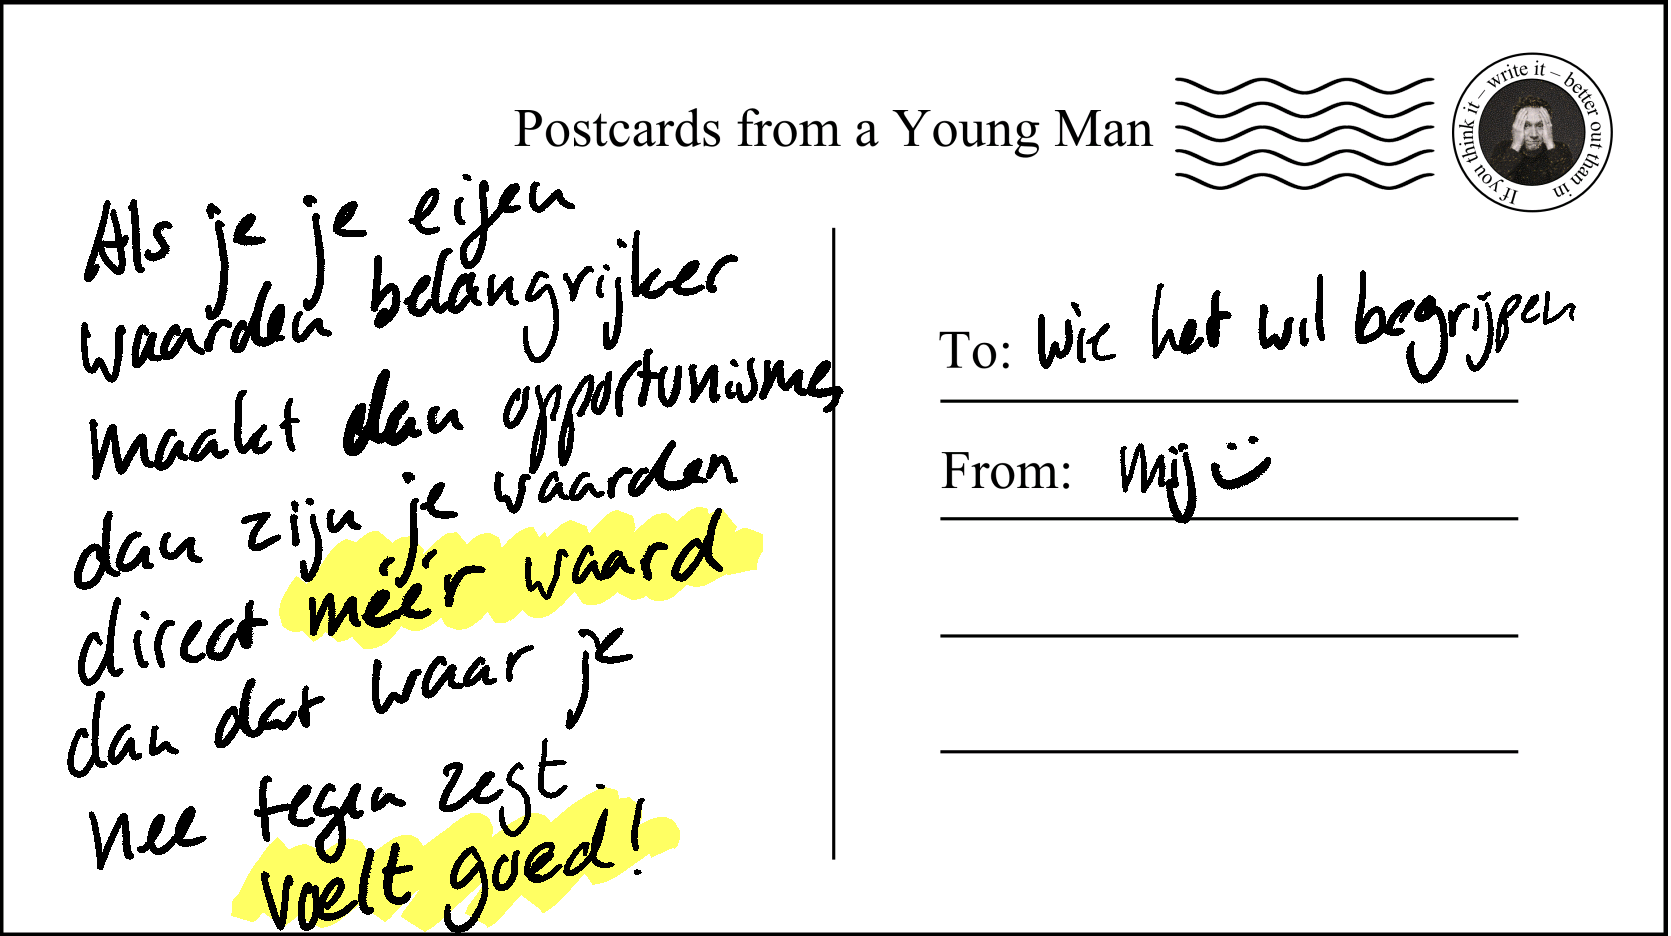 Postcards from a Young Man
If you think it – write it – better out than in
Als je je eigen
waarden belangrijker
maakt dan opportunisme,
dan zijn je waarden
direct méér waard
dan dat waar je
nee tegen zegt.
Voelt goed!
To: Wie het wil begrijpen
From: Mij :)